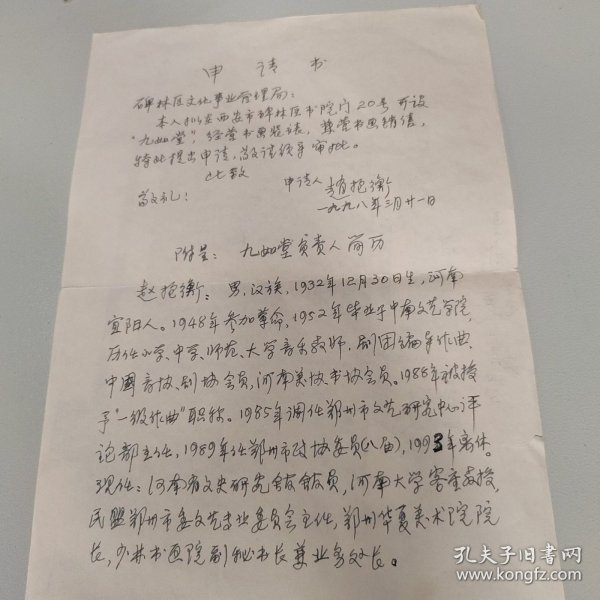 申请书
碑林区文化事业管理局：
本人拟在西安市碑林区书院门20号开设
"九如堂"，经营书画装裱，兼营书画销售，
特此提出申请，敬请领导审批。
此致
敬礼！
申请人 赵抱衡
一九九八年三月廿一日
附呈：九如堂负责人简历
赵抱衡：男，汉族，1932年12月30日生，河南
宜阳人。1948年参加革命，1952年毕业于中南文艺学院，
历任小学、中学、师范、大学音乐教师，剧团编导作曲，
中国音协、剧协会员，河南美协书协会员。1988年被授
予"一级作曲"职称。1985年调任郑州市文艺研究中心评
论部主任，1989年任郑州市政协委员(八届)，1993年离休。
现任：河南省文史研究馆馆员，河南大学客座教授，
民盟郑州市委文艺专业委员会主任，郑州华夏美术院院
长，少林书画院副秘书长兼业务处长。
孔夫子旧书网
www.kongfz.com